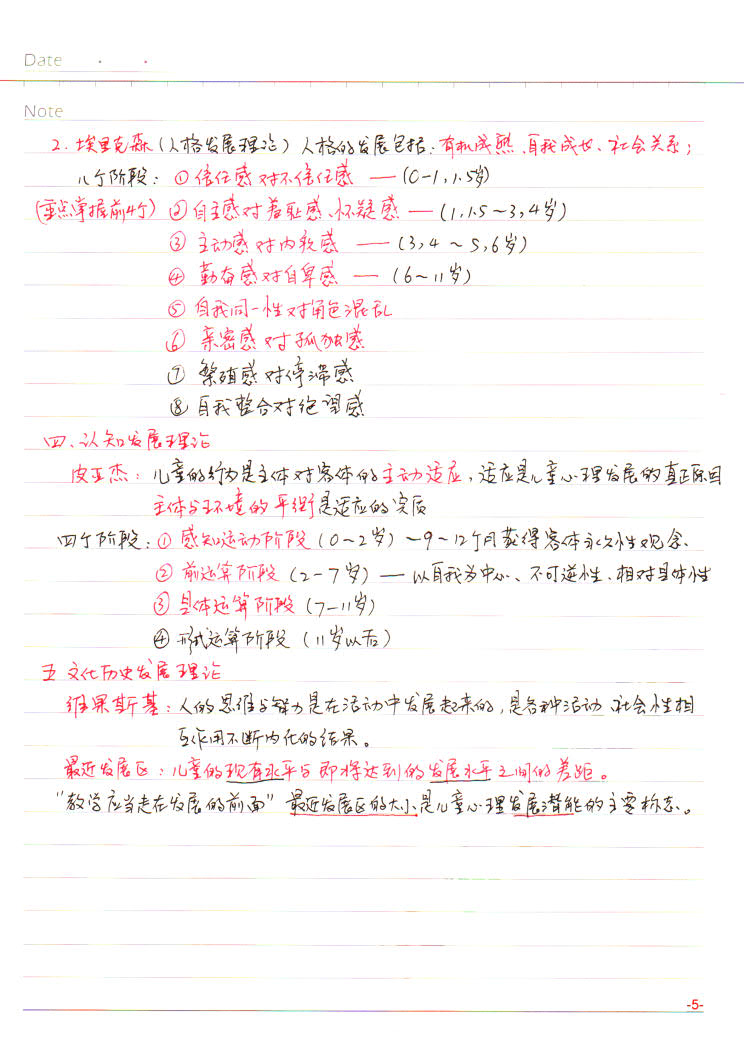 Date
Note
2. 埃里克森(人格发展理论) 人格的发展包括:有机成熟、自我成长、社会关系;
八个阶段: ①信任感对不信任感 —(0-1,1.5岁)
(重点掌握前4个) ②自主感对羞耻感、怀疑感 —(1,1.5~3,4岁)
③ 主动感对内疚感 —(3,4 ~ 5,6岁)
④ 勤奋感对自卑感 —(6~11岁)
⑤ 自我同一性对角色混乱
⑥ 亲密感对孤独感
⑦ 繁殖感对停滞感
⑧ 自我整合对绝望感
四、认知发展理论
皮亚杰: 儿童的行为是主体对客体的主动适应,适应是儿童心理发展的真正原因
主体与环境的平衡是适应的实质
四个阶段:① 感知运动阶段(0~2岁)~9~12个月获得客体永久性观念、
② 前运算阶段(2-7岁)— 以自我为中心、不可逆性、相对具体性
③ 具体运算阶段(7-11岁)
④ 形式运算阶段(11岁以后)
五 文化历史发展理论
维果斯基:人的思维与智力是在活动中发展起来的,是各种活动、社会性相
互作用不断内化的结果。
最近发展区:儿童的现有水平与即将达到的发展水平之间的差距。
"教学应当走在发展的前面" 最近发展区的大小是儿童心理发展潜能的主要标志。
-5-